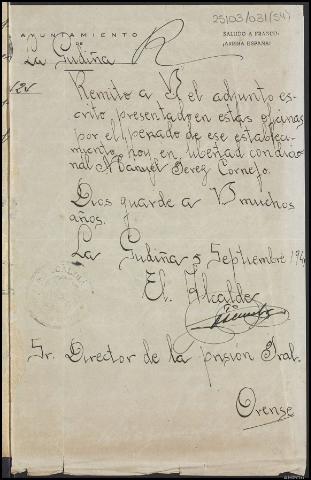 25103/031(54)
AYUNTAMIENTO
DE
La Gudiña
SALUDO A FRANCO:
¡ARRIBA ESPAÑA!
R
Remito a V el adjunto es-
crito, presentado en estas oficinas
por el penado de ese estableci-
miento, hoy en libertad condicio-
nal Manuel Perez Cornejo.
Dios guarde a V muchos
años.
La Gudiña 5 Septiembre 194
El Alcalde
Sr. Director de la prisión Pral.
Orense